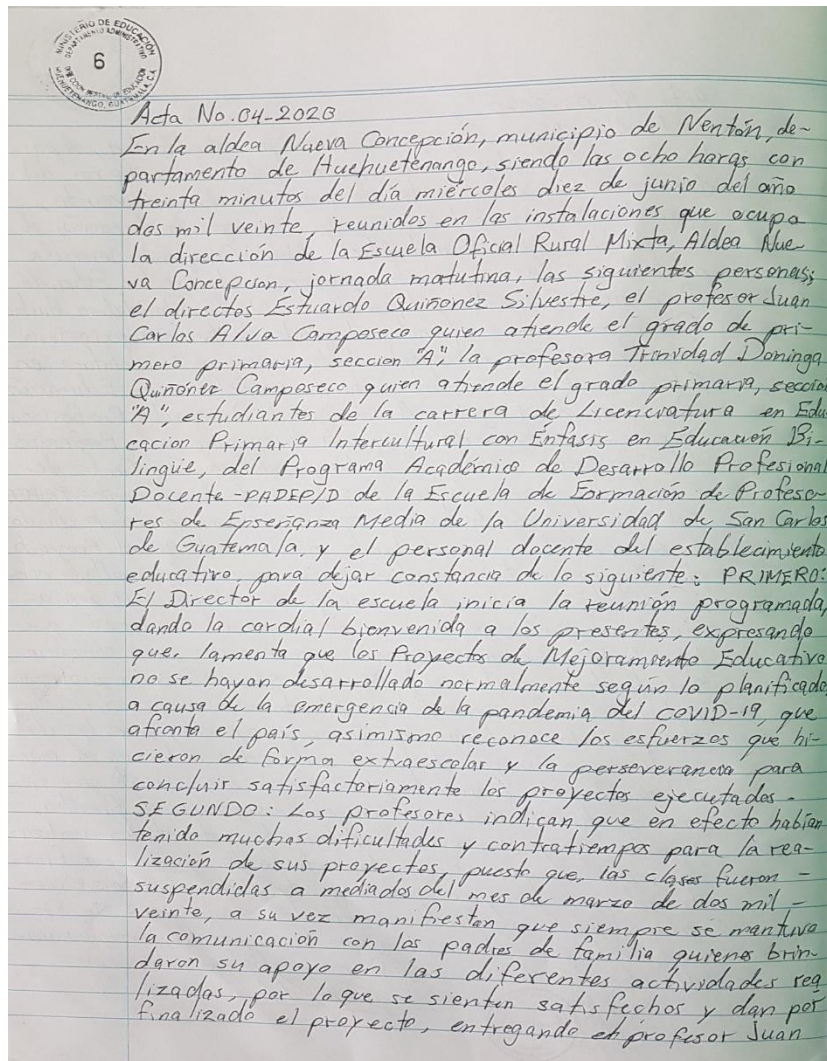 MINISTERIO DE EDUCACIÓN
DEPARTAMENTO ADMINISTRATIVO
6
HUEHUETENANGO, GUATEMALA, C.A.
Acta No. 04-2020
En la aldea Nueva Concepción, municipio de Nentón, de-
partamento de Huehuetenango, siendo las ocho horas con
treinta minutos del día miércoles diez de junio del año
dos mil veinte, reunidos en las instalaciones que ocupa
la dirección de la Escuela Oficial Rural Mixta, Aldea Nue-
va Concepcion, jornada matutina, las siguientes personas;
el directos Estuardo Quiñonez Silvestre, el profesor Juan
Carlos Alva Camposeco quien atiende el grado de pri-
mero primaria, seccion "A", la profesora Trinidad Dominga
Quiñónez Camposeco quien atiende el grado primaria, sección
"A", estudiantes de la carrera de Licenciatura en Edu
cacion Primaria Intercultural con Énfasis en Educación Bi-
lingüe, del Programa Académico de Desarrollo Profesional
Docente -PADEP/D de la Escuela de Formación de Profeso-
res de Enseñanza Media de la Universidad de San Carlos
de Guatemala, y el personal docente del establecimiento
educativo, para dejar constancia de lo siguiente: PRIMERO:
El Director de la escuela inicia la reunión programada,
dando la cordial bienvenida a los presentes, expresando
que, lamenta que los Proyectos de Mejoramiento Educativo
no se hayan desarrollado normalmente según lo planificado
a causa de la emergencia de la pandemia del COVID-19, que
afronta el país, asimismo reconoce los esfuerzos que hi-
cieron de forma extraescolar y la perseverancia para
concluir satisfactoriamente los proyectos ejecutados.
SEGUNDO: Los profesores indican que en efecto habían
tenido muchas dificultades y contratiempos para la rea-
lización de sus proyectos, puesto que, las clases fueron -
suspendidas a mediados del mes de marzo de dos mil -
veinte, a su vez manifiestan que siempre se mantuvo
la comunicación con los padres de familia quienes brin-
daron su apoyo en las diferentes actividades rea
lizadas, por lo que se sienten satisfechos y dan por
finalizado el proyecto, entregando el profesor Juan